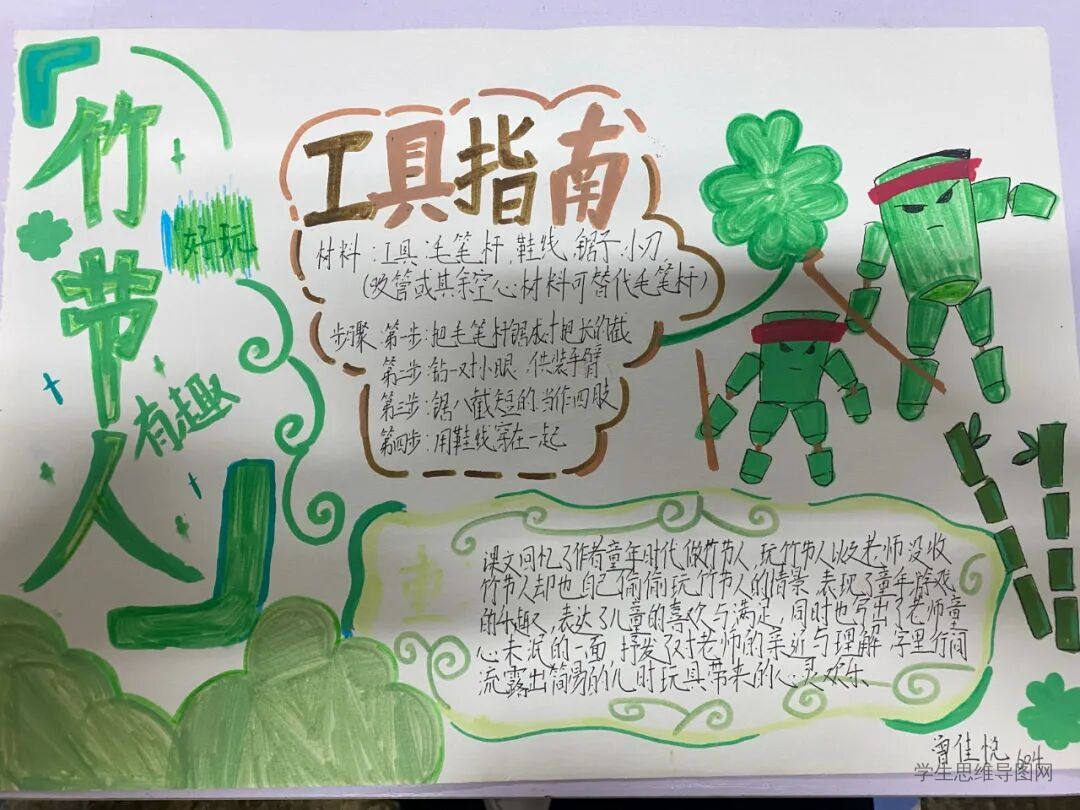 『竹节人』
好玩
有趣
工具指南
材料：工具：毛笔杆，鞋线，锯子，小刀，
（吸管或其余空心材料可替代毛笔杆）
步骤：第一步：把毛笔杆锯成寸把长的截
第二步：钻一对小眼，供装手臂
第三步：锯八截短的当作四肢
第四步：用鞋线穿在一起
课文回忆了作者童年时代做竹节人，玩竹节人以及老师没收
竹节人却也自己偷偷玩竹节人的情景，表现了童年游戏
的乐趣，表达了儿童的喜欢与满足，同时也写出了老师童
心未泯的一面，抒发了对老师的亲近与理解，字里行间
流露出简易的儿时玩具带来的心灵欢乐、
曾佳悦 604
学生思维导图网